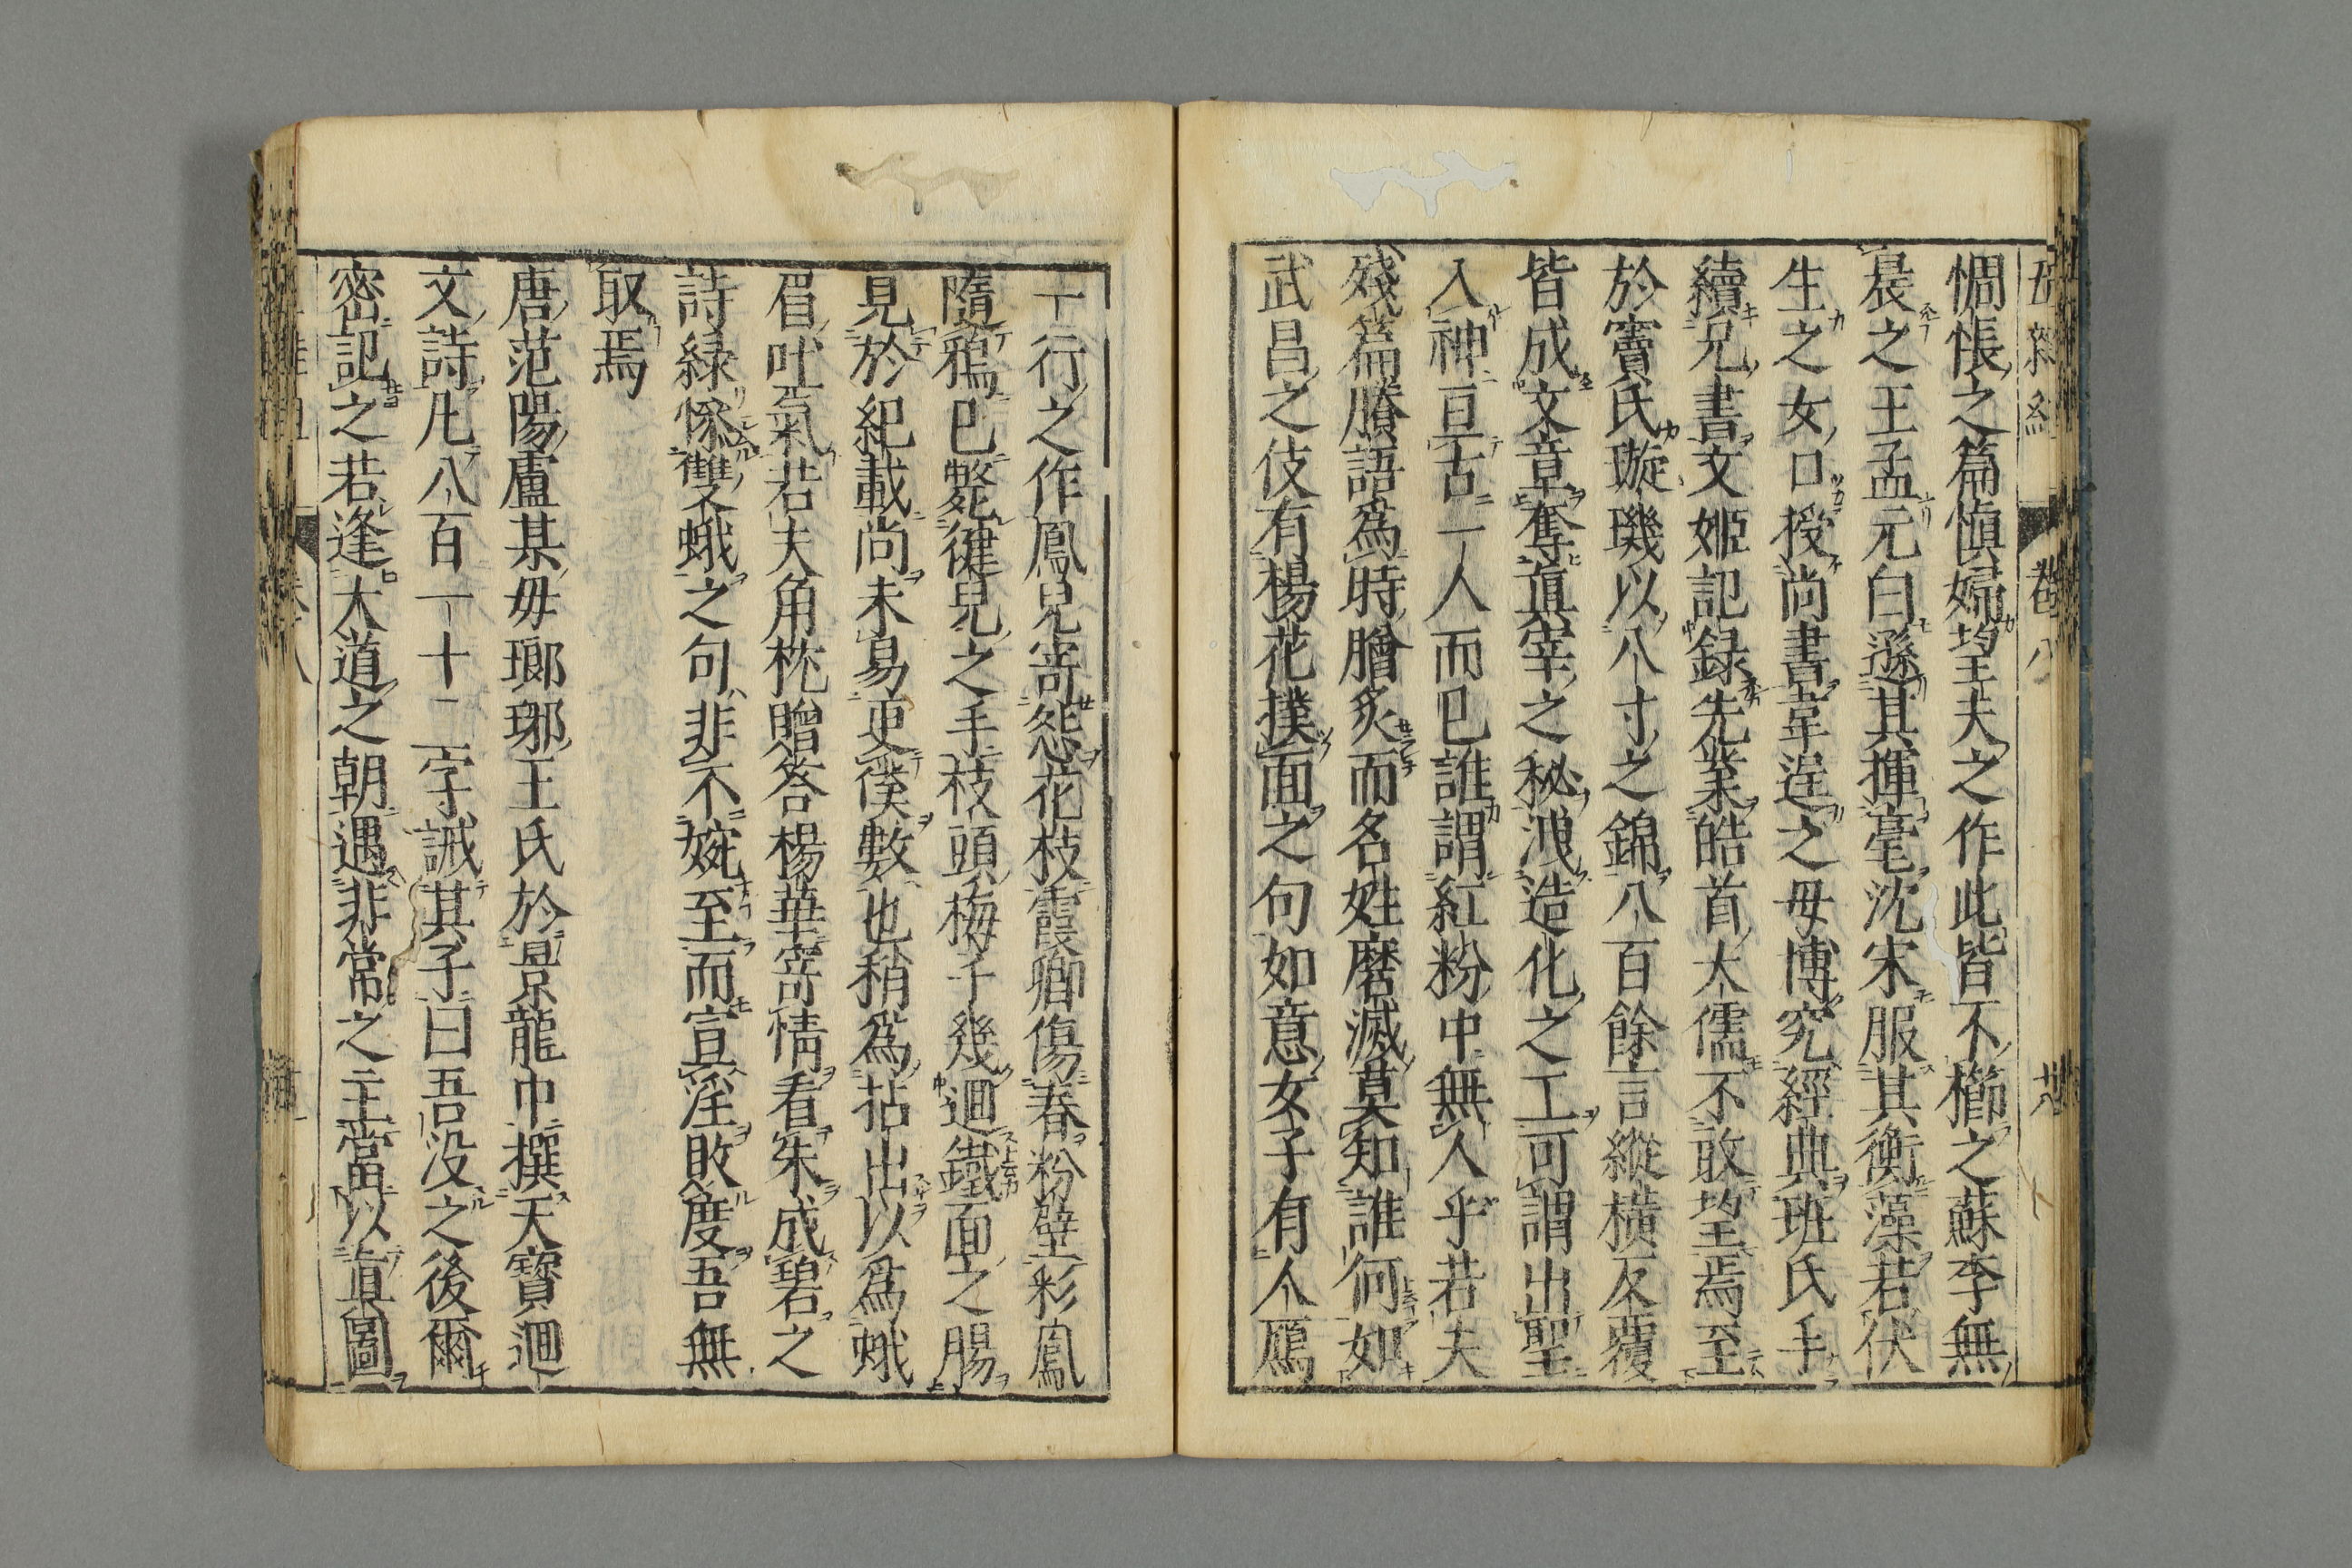 五雜組 卷八
惆悵之篇愼婦望夫之作此皆不櫛之蘇李無
裠之王孟元白遜其揮毫沈宋服其衡藻若伏
生之女口授尚書韋逞之母博究經典班氏手
續兄書文姬記録先業皓首大儒不敢望焉至
於竇氏璇璣以八寸之錦八百餘言縱橫反覆
皆成文章奪眞宰之秘洩造化之工可謂出聖
入神亘古一人而已誰謂紅粉中無人乎若夫
殘篇賸語爲時膾炙而名姓磨滅莫知誰何如
武昌之伎有楊花撲面之句如意女子有人鴈
一行之作鳳兒寄怨花枝霞卿傷春粉壁彩鳳
隨鴉已斃健兒之手枝頭梅子幾迴鐵面之腸
見於紀載尚未易更僕數也稍爲拈出以爲蛾
眉吐氣若夫角枕贈答楊華寄情看朱成碧之
詩緑慘雙蛾之句非不婉至而宣淫敗度吾無
取焉
唐范陽盧某毋瑯琊王氏於景龍中撰天寶迴
文詩凡八百一十二字誡其子曰吾没之後爾
密記之若逢大道之朝遇非常之主當以眞圖